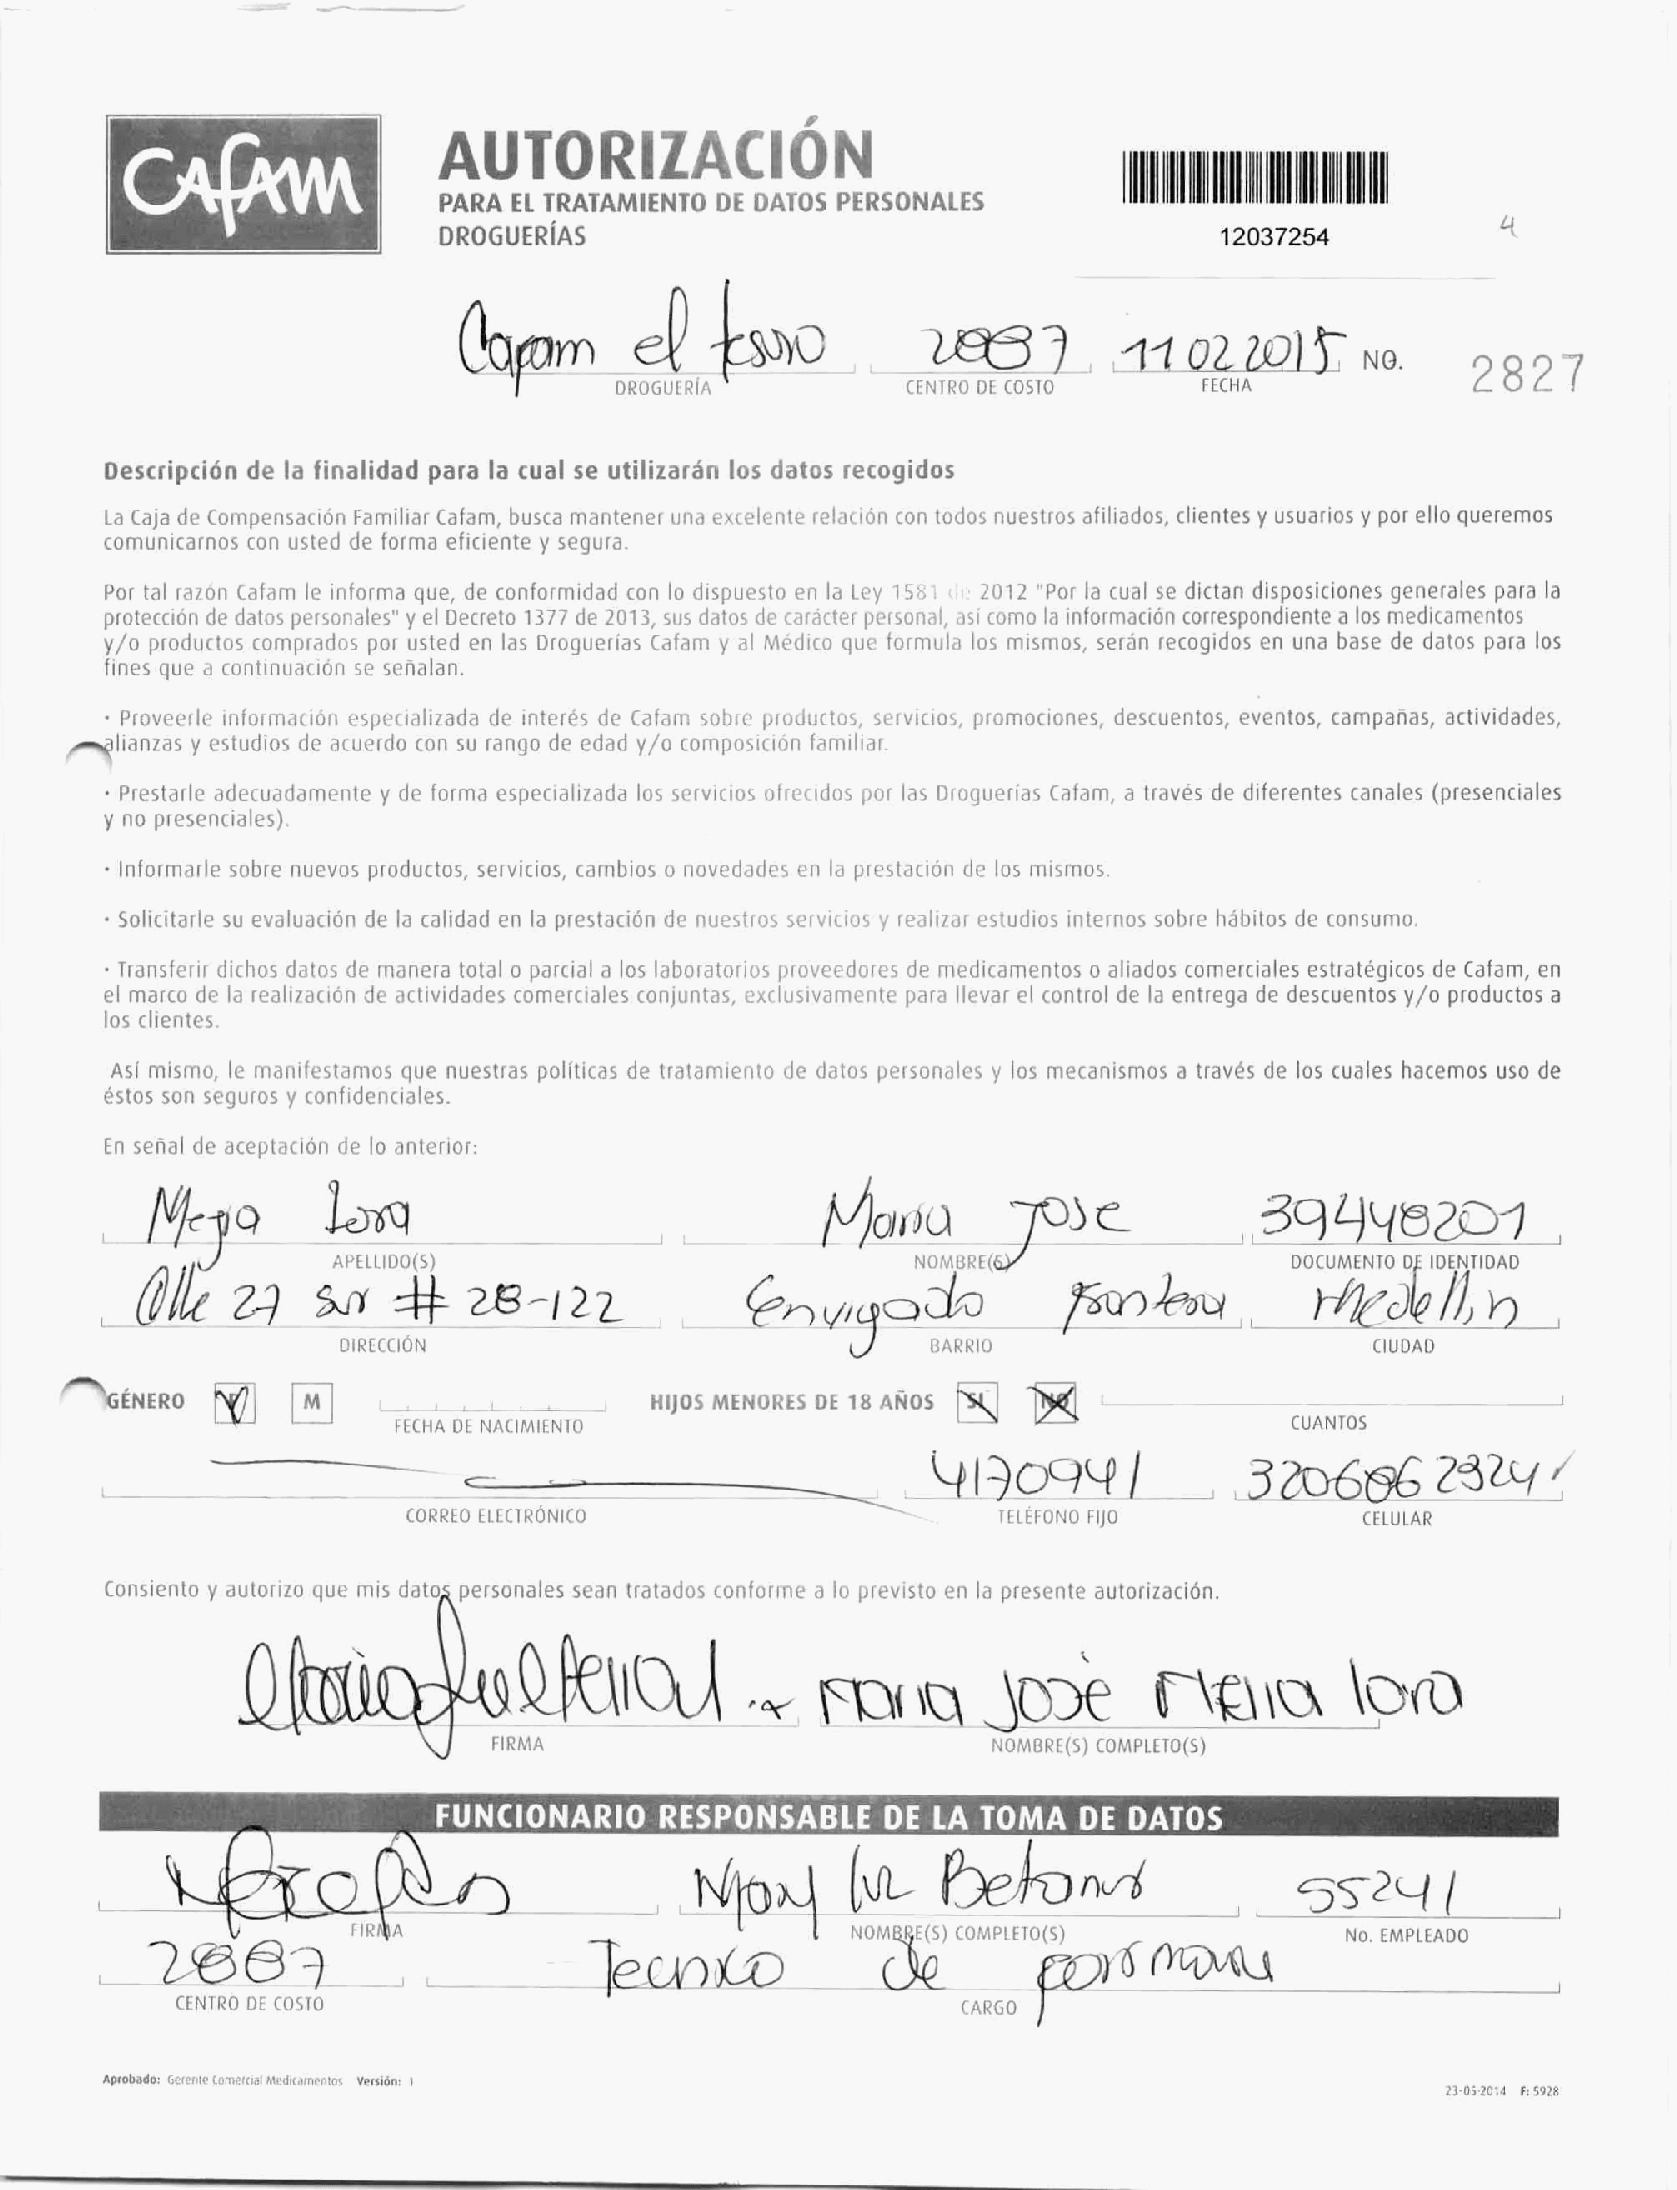 Cafam
AUTORIZACIÓN
PARA EL TRATAMIENTO DE DATOS PERSONALES
DROGUERÍAS
12037254
4
Cafam el tesoro 2887 11 02 2015 NO. 2827
DROGUERÍA CENTRO DE COSTO FECHA
Descripción de la finalidad para la cual se utilizarán los datos recogidos
La Caja de Compensación Familiar Cafam, busca mantener una excelente relación con todos nuestros afiliados, clientes y usuarios y por ello queremos
comunicarnos con usted de forma eficiente y segura.
Por tal razón Cafam le informa que, de conformidad con lo dispuesto en la Ley 1581 de 2012 "Por la cual se dictan disposiciones generales para la
protección de datos personales" y el Decreto 1377 de 2013, sus datos de carácter personal, así como la información correspondiente a los medicamentos
y/o productos comprados por usted en las Droguerías Cafam y al Médico que formula los mismos, serán recogidos en una base de datos para los
fines que a continuación se señalan.
· Proveerle información especializada de interés de Cafam sobre productos, servicios, promociones, descuentos, eventos, campañas, actividades,
alianzas y estudios de acuerdo con su rango de edad y/o composición familiar.
· Prestarle adecuadamente y de forma especializada los servicios ofrecidos por las Droguerías Cafam, a través de diferentes canales (presenciales
y no presenciales).
· Informarle sobre nuevos productos, servicios, cambios o novedades en la prestación de los mismos.
· Solicitarle su evaluación de la calidad en la prestación de nuestros servicios y realizar estudios internos sobre hábitos de consumo.
· Transferir dichos datos de manera total o parcial a los laboratorios proveedores de medicamentos o aliados comerciales estratégicos de Cafam, en
el marco de la realización de actividades comerciales conjuntas, exclusivamente para llevar el control de la entrega de descuentos y/o productos a
los clientes.
Así mismo, le manifestamos que nuestras políticas de tratamiento de datos personales y los mecanismos a través de los cuales hacemos uso de
éstos son seguros y confidenciales.
En señal de aceptación de lo anterior:
Mejia Lora Maria Jose 39448201
APELLIDO(S) NOMBRE(S) DOCUMENTO DE IDENTIDAD
Calle 27 sur # 28-122 Envigado Medellin
DIRECCIÓN BARRIO CIUDAD
GÉNERO F M HIJOS MENORES DE 18 AÑOS SI NO
FECHA DE NACIMIENTO CUANTOS
4170941
CORREO ELECTRÓNICO TELÉFONO FIJO CELULAR
Consiento y autorizo que mis datos personales sean tratados conforme a lo previsto en la presente autorización.
Maria José Mejia lora
FIRMA NOMBRE(S) COMPLETO(S)
FUNCIONARIO RESPONSABLE DE LA TOMA DE DATOS
55241
FIRMA NOMBRE(S) COMPLETO(S) No. EMPLEADO
2887 Tecnico de
CENTRO DE COSTO CARGO
Aprobado: Gerente Comercial Medicamentos Versión: 1
23-05-2014 F: 5928